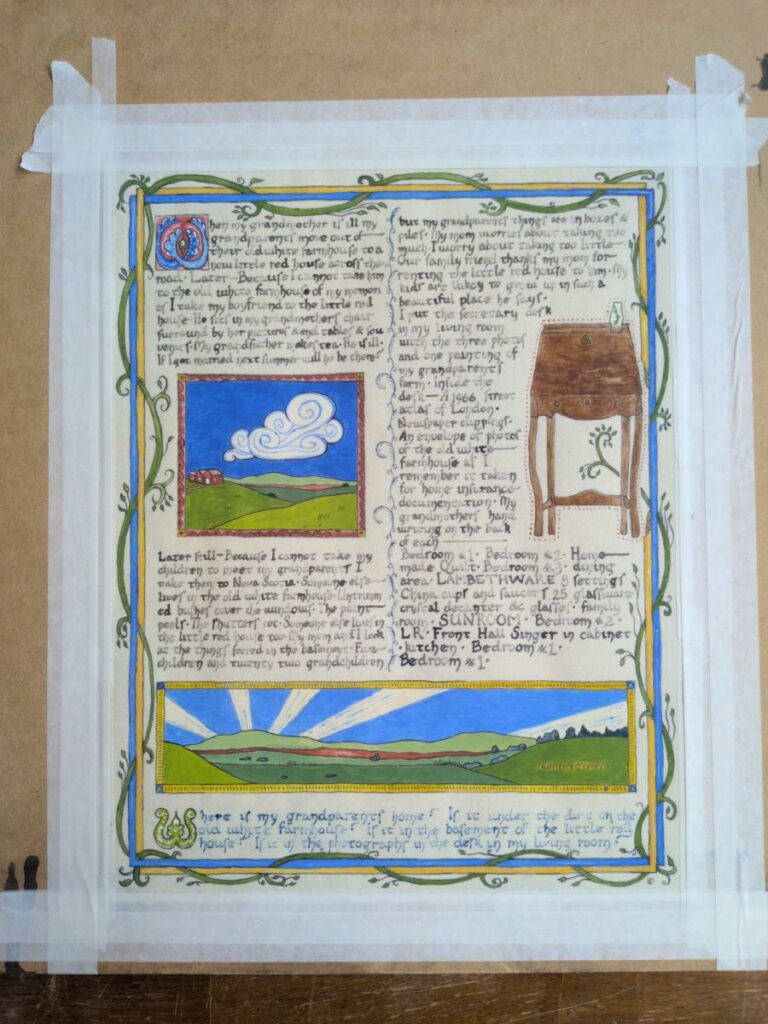 When my grandmother is ill my
grandparents move out of
their old white farmhouse to a
new little red house across the
road · Later — Because I cannot take him
to the old white farmhouse of my memori
es I take my boyfriend to the little red
house · He sits in my grandmothers chair
surround by her pictures & end tables & sou
venirs · My grandfather makes tea · He is ill ·
If I get married next summer will he be there?
Later still — Because I cannot take my
children to meet my grandparents I
take them to Nova Scotia · Someone else
lives in the old white farmhouse · Untrimm
ed bushes cover the windows · The paint
peels · The shutters rot · Someone else lives in
the little red house too · My mom and I look
at the things stored in the basement · Five
children and twenty two grandchildren
but my grandparents things are in boxes &
piles · My mom worries about taking too
much I worry about taking too little
Our family friend thanks my mom for
renting the little red house to him · My
kids are lucky to grow up in such a
beautiful place he says ·
I put the secretary desk
in my living room
with the three photos
and one painting of
my grandparents
farm · Inside the
desk — A 1966 street
atlas of London ·
Newspaper clippings ·
An envelope of photos
of the old white
farmhouse as I
remember it taken
for home insurance
documentation · My
grandmothers hand
writing on the back
of each
Bedroom #1 · Bedroom #2 · Home
made Quilt · Bedroom #3 · dining
area · LAMBETHWARE 8 settings
China cups and saucers 25 glassware
crystal decanter & glasses · family
room · SUNROOM · Bedroom #2 ·
L.R. Front Hall Singer in cabinet
· kitchen · Bedroom #1 ·
Bedroom #1 ·
Where is my grandparents home? Is it under the dirt on the
old white farmhouse? Is it in the basement of the little red
house? Is it in the photographs in the desk in my living room?